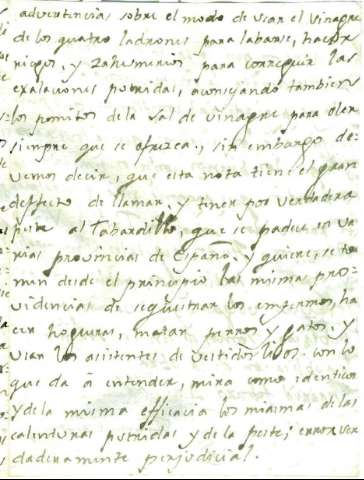 advertencias sobre el modo de usar el Vinagre
de los quatro ladrones para labarse, hacer
riegos, y zahumerios para corregir las
exalaciones podridas, aconsejando tambien
los pomitos de la sal de vinagre para oler
siempre que se ofrezca, sin embargo de-
vemos decir, que esta nota tiene el gran
deffecto de llamar, y tener por verdadera
peste al Tabardillo, que se padece en va
rias provincias de España, y quiere, se to
men desde el principio las mismas pro-
videncias de seqüestrar los enfermos, ha
cer hogueras, matar perros y gatos, y
usar los asistentes de vestidos lisos. con lo
que da á entender, mira como identicos
y de la misma efficacia los miasmas de las
calenturas putridas y de la peste; error ver
daderamente perjudicial.